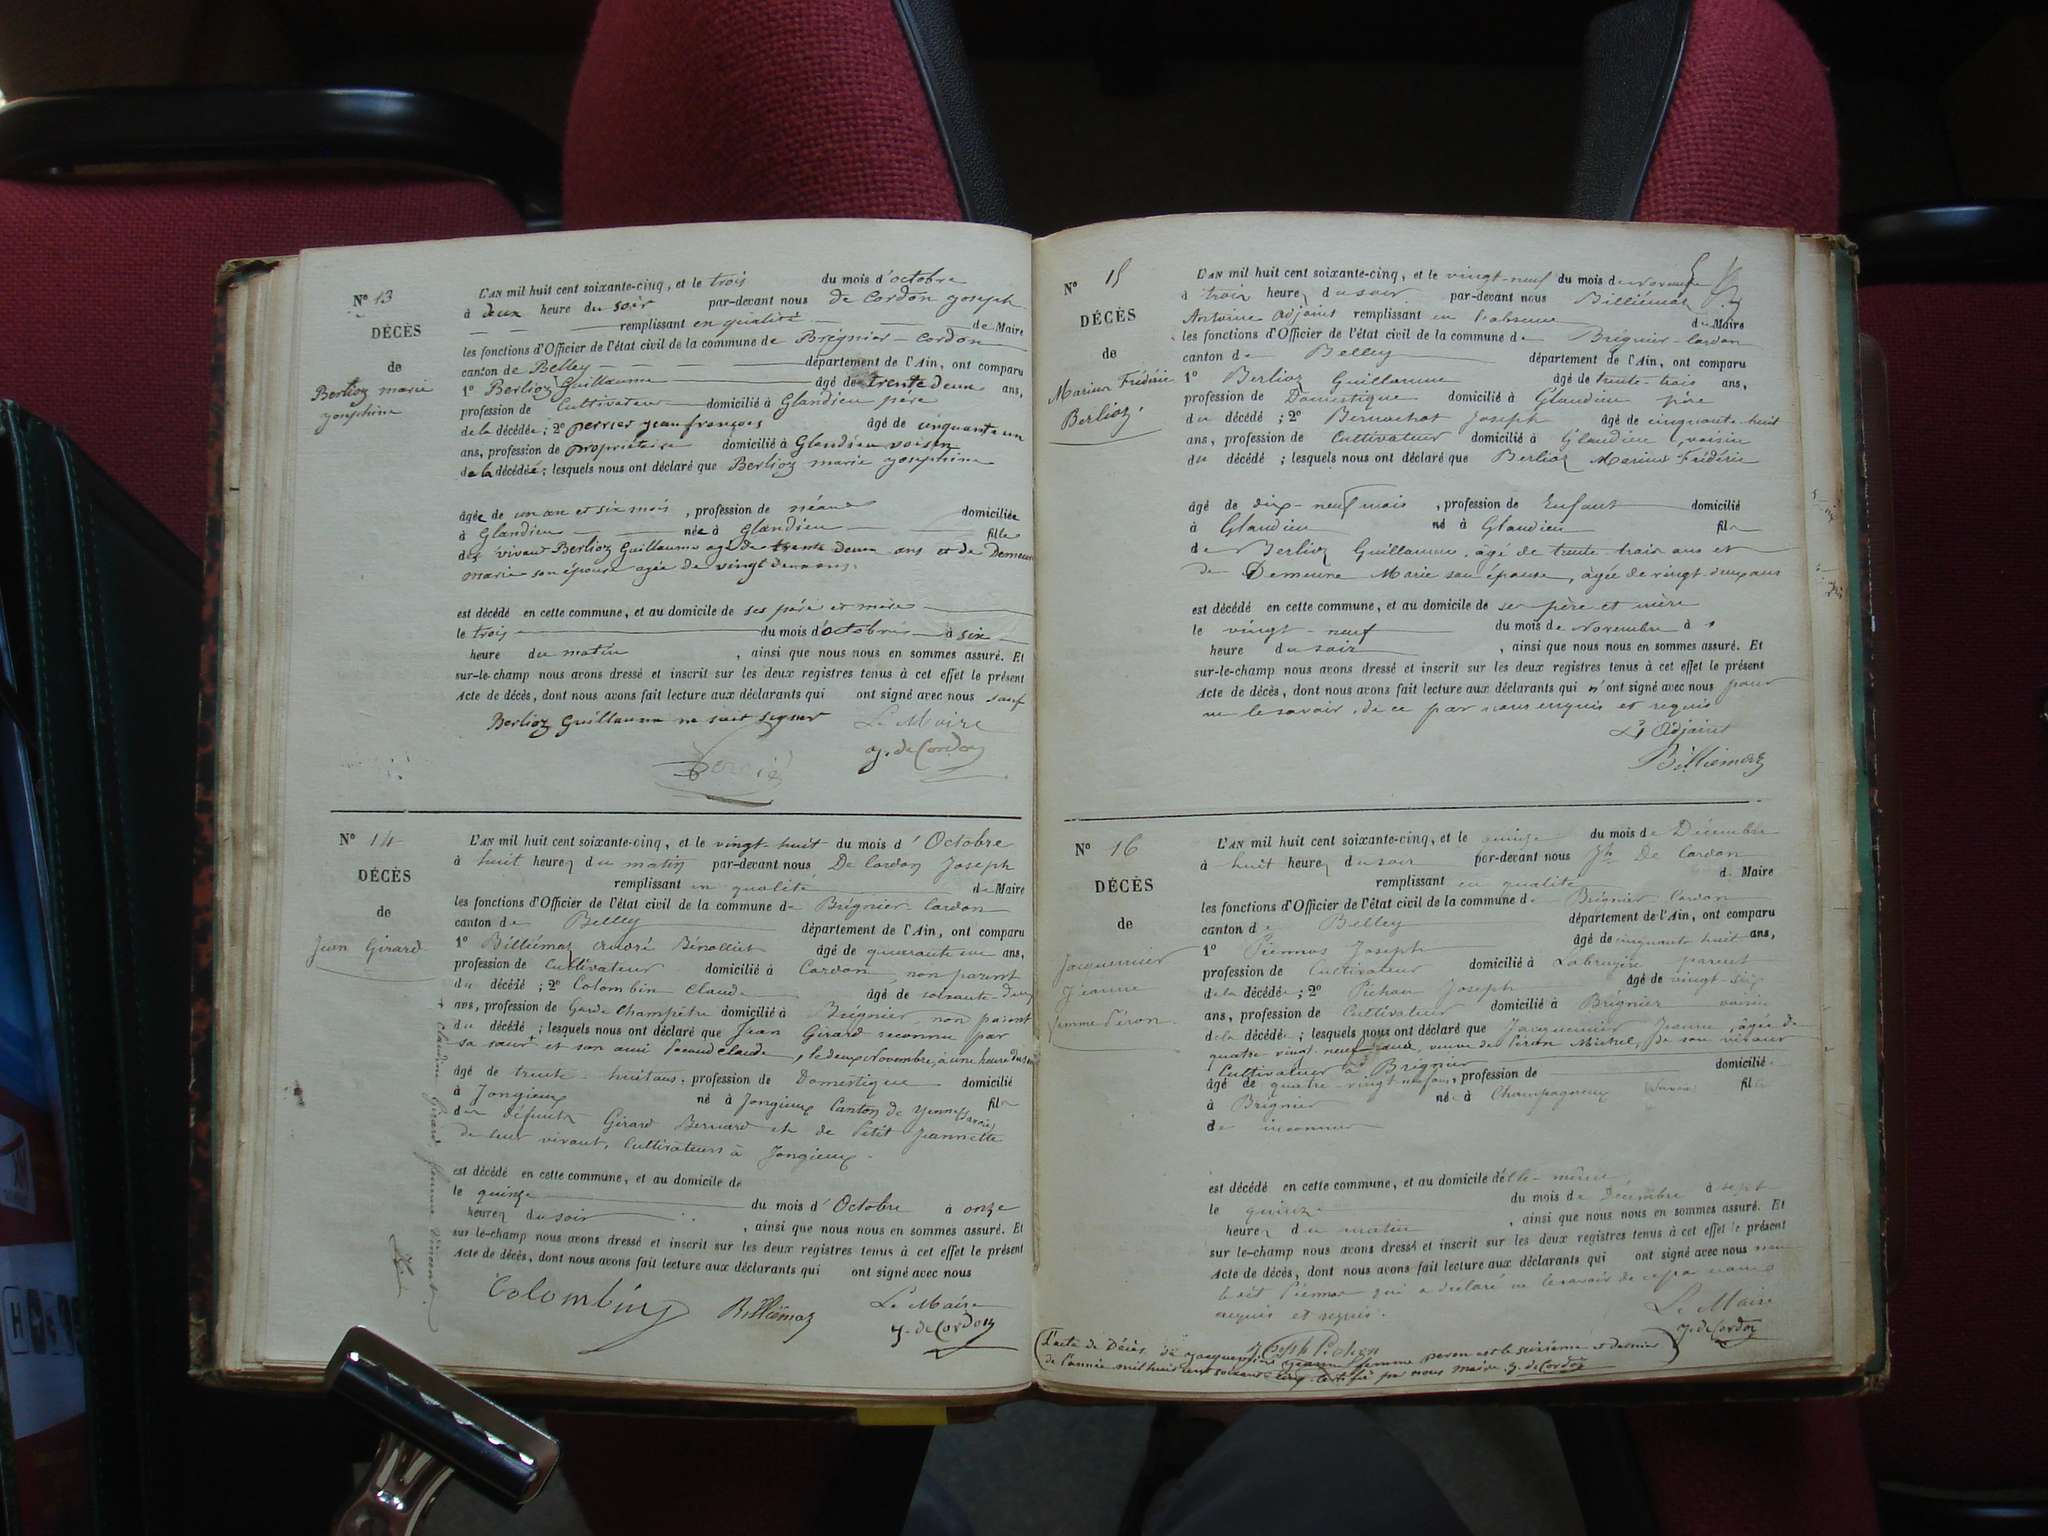 N° 13
DÉCÈS
de
Berlioz marie
josephine
L'AN mil huit cent soixante-cinq, et le trois du mois d'octobre
à deux heure du soir par-devant nous de Cordon joseph
remplissant en qualité de Maire
les fonctions d'Officier de l'état civil de la commune de Brégnier-Cordon
canton de Belley département de l'Ain, ont comparu
1° Berlioz Guillaume âgé de trente deux ans,
profession de Cultivateur domicilié à Glandieu père
de la décédée; 2° perrier jean françois âgé de cinquante un
ans, profession de propriétaire domicilié à Glandieu voisin
de la décédée; lesquels nous ont déclaré que Berlioz marie josephine
âgée de un an et six mois, profession de néant domiciliée
à Glandieu née à Glandieu fille
des vivant Berlioz Guillaume agé de trente deux ans et de Demeure
marie son épouse agée de vingt deux ans.
est décédé en cette commune, et au domicile de ses père et mère
le trois du mois d'octobre à six
heure du matin, ainsi que nous nous en sommes assuré. Et
sur-le-champ nous avons dressé et inscrit sur les deux registres tenus à cet effet le présent
Acte de décès, dont nous avons fait lecture aux déclarants qui ont signé avec nous sauf
Berlioz Guillaume ne sait signer Le Maire
j. de Cordon
N° 14
DÉCÈS
de
Jean Girard
L'AN mil huit cent soixante-cinq, et le vingt-huit du mois d'Octobre
à huit heures du matin par-devant nous De Cordon Joseph
remplissant en qualité de Maire
les fonctions d'Officier de l'état civil de la commune de Brégnier-Cordon
canton de Belley département de l'Ain, ont comparu
1° Billiémaz André Bénollict âgé de quarante un ans,
profession de Cultivateur domicilié à Cordon, non parent
du décédé; 2° Colombin Claude âgé de soixante-deux
ans, profession de Garde Champêtre domicilié à Brégnier, non parent
du décédé; lesquels nous ont déclaré que Jean Girard reconnu par
sa sœur + et son ami Claude, le deux Novembre, à une heure du soir
âgé de trente-huit ans, profession de Domestique domicilié
à Jongieux né à Jongieux Canton de Yenne (Savoie) fils
des défunts Girard Bernard et de Petit Jeannette
de leur vivant, Cultivateurs à Jongieux.
est décédé en cette commune, et au domicile de
le quinze du mois d'Octobre à onze
heures du soir, ainsi que nous nous en sommes assuré. Et
sur-le-champ nous avons dressé et inscrit sur les deux registres tenus à cet effet le présent
Acte de décès, dont nous avons fait lecture aux déclarants qui ont signé avec nous
Colombin Billiémaz Le Maire
j. de Cordon
+ Claudine Girard femme Vincent.
N° 15
DÉCÈS
de
Marius Frédéric
Berlioz.
L'AN mil huit cent soixante-cinq, et le vingt-neuf du mois de Novembre
à trois heures du soir par-devant nous Billiémaz
Antoine Adjoint remplissant en l'absence du Maire
les fonctions d'Officier de l'état civil de la commune de Brégnier-Cordon
canton de Belley département de l'Ain, ont comparu
1° Berlioz Guillaume âgé de trente-trois ans,
profession de Domestique domicilié à Glandieu père
du décédé; 2° Bernachot Joseph âgé de cinquante-huit
ans, profession de Cultivateur domicilié à Glandieu, voisin
du décédé; lesquels nous ont déclaré que Berlioz Marius Frédéric
âgé de dix-neuf mois, profession de Enfant domicilié
à Glandieu né à Glandieu fils
de Berlioz Guillaume, âgé de trente-trois ans et
de Demeure Marie son épouse, âgée de vingt-deux ans
est décédé en cette commune, et au domicile de ses père et mère
le vingt-neuf du mois de Novembre à
heure du soir, ainsi que nous nous en sommes assuré. Et
sur-le-champ nous avons dressé et inscrit sur les deux registres tenus à cet effet le présent
Acte de décès, dont nous avons fait lecture aux déclarants qui n'ont signé avec nous pour
ne le savoir, de ce par nous enquis et requis
L'Adjoint
Billiémaz
N° 16
DÉCÈS
de
Jacquemier
Jeanne
femme Péron.
L'AN mil huit cent soixante-cinq, et le quinze du mois de Décembre
à huit heures du soir par-devant nous Jh De Cordon
remplissant en qualité de Maire
les fonctions d'Officier de l'état civil de la commune de Brégnier-Cordon
canton de Belley département de l'Ain, ont comparu
1° Piennos Joseph âgé de cinquante huit ans,
profession de Cultivateur domicilié à Labruyère parent
de la décédée; 2° Pichon Joseph âgé de vingt-
ans, profession de Cultivateur domicilié à Brégnier voisin
de la décédée; lesquels nous ont déclaré que Jacquemier Jeanne, âgée de
quatre vingt neuf ans, veuve de Péron Michel, de son vivant
Cultivateur à Brégnier
âgé de quatre-vingt neuf ans, profession de domiciliée
à Brégnier née à Champagneux (Savoie) fille
de inconnus
est décédé en cette commune, et au domicile d'elle-même
le quinze du mois de Décembre à sept
heures du matin, ainsi que nous nous en sommes assuré. Et
sur-le-champ nous avons dressé et inscrit sur les deux registres tenus à cet effet le présent
Acte de décès, dont nous avons fait lecture aux déclarants qui ont signé avec nous non
le dit Piennos qui a déclaré ne le savoir de ce par nous
enquis et requis.
Le Maire
j. de Cordon
Joseph Pichon
(L'acte de Décès de jacquemier jeanne femme peron est le seizième et dernier
de l'année mil huit cent soixante-cinq certifié par nous maire j. de Cordon)